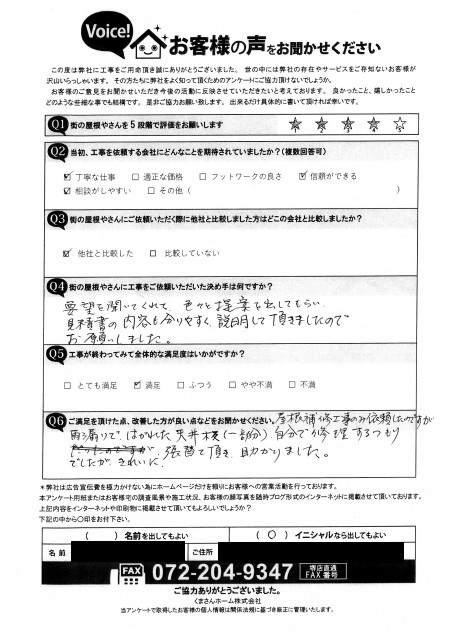 Voice!
お客様の声をお聞かせください
この度は弊社に工事をご用命頂き誠にありがとうございました。 世の中には弊社の存在やサービスをご存知ないお客様が
沢山いらっしゃいます。その方たちに弊社をよく知って頂くためのアンケートにご協力頂けないでしょうか。
お客様のご意見をお聞かせいただき今後の活動に反映させていただきたいと考えております。 良かったこと、嬉しかったこと
どのような些細な事でも結構です。 是非ご協力お願い致します。 出来るだけ具体的に書いて頂ければ幸いです。
Q1 街の屋根やさんを5段階で評価をお願いします ★ ★ ★ ★ ☆
Q2 当初、工事を依頼する会社にどんなことを期待されていましたか？(複数回答可)
☑ 丁寧な仕事 □ 適正な価格 □ フットワークの良さ ☑ 信頼ができる
☑ 相談がしやすい □ その他 ( )
Q3 街の屋根やさんにご依頼いただく際に他社と比較しました方はどこの会社と比較しましたか？
☑ 他社と比較した □ 比較していない
Q4 街の屋根やさんに工事をご依頼いただいた決め手は何ですか？
要望を聞いてくれて 色々と提案を出してもらい
見積書の内容も分りやすく、説明して頂きましたので
お願いしました。
Q5 工事が終わってみて全体的な満足度はいかがですか？
□ とても満足 ☑ 満足 □ ふつう □ やや不満 □ 不満
Q6 ご満足を頂けた点、改善した方が良い点などをお聞かせください。 屋根補修工事のみ依頼したのですが
雨漏りで はがれた天井板(一部分)自分で修理するつもり
でしたが きれいに 張替て頂き 助かりました。
＊弊社は広告宣伝費を極力かけない為にホームページだけを頼りにお客様への営業活動を行っております。
本アンケート用紙またはお客様宅の調査風景や施工状況、お客様の顔写真を随時ブログ形式のインターネットに掲載させて頂いております。
上記内容をインターネットや印刷物に掲載させて頂いてもよろしいでしょうか？
下記の中から〇印をお付下さい。
( ) 名前を出してもよい ( 〇 ) イニシャルなら出してもよい
名 前 ご住所
FAX 072-204-9347 堺店直通 FAX番号
ご協力ありがとうございました。
くまさんホーム株式会社
当アンケートで採用したお客様の個人情報は関係法規に基づき厳正に管理いたします。